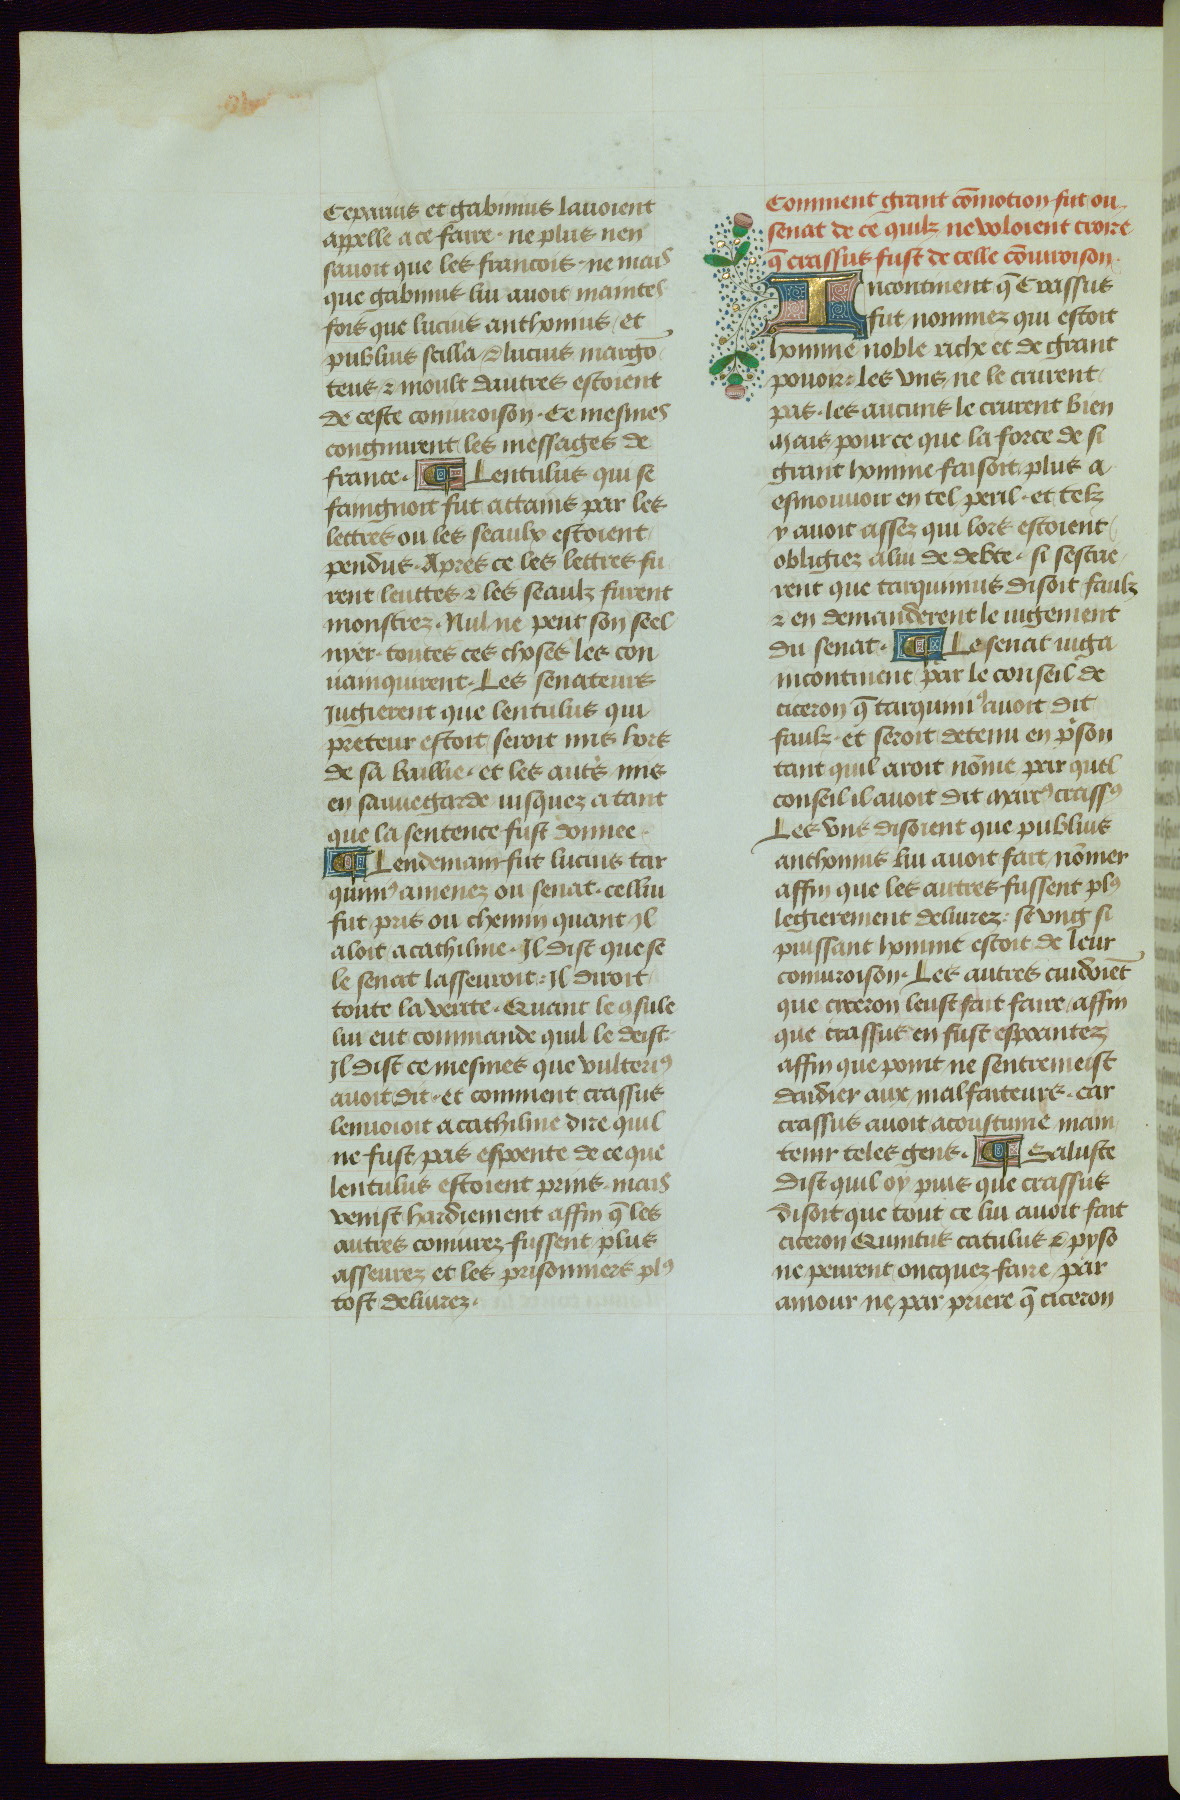 Ceparius et gabinius lauoient
appelle a ce faire. ne plus nen
sauoit que les francois. ne mais
que gabinius lui auoit maintes
fois que lucius anthonius / et
publius scilla / Et lucius margō
teus ⁊ moult dautres estoient
de ceste coniuroison. Ce mesmes
congnurent les messages de
france. Lentulus qui se
faingnoit fut attains par les
lettres ou les seaulx estoient
pendus. Apres ce les lettres fu
rent leuttes ⁊ les seaulz furent
monstrez. Nul ne peut son seel
nyer. toutes ces choses les con
uainquirent. Les senateurs
Jugierent que lentulus qui
preteur estoit seroit mis hors
de sa baillie. et les autēs mis
en sauuegarde iusquez a tant
que la sentence fust donnee.
Lendemain fut lucius tar
quiniꝯ amenez ou senat. cellui
fut pris ou chemin quant Jl
aloit a cathiline. Jl dist que se
le senat lasseuroit: Jl diroit
toute la verite. Quant le ꝯsule
lui eut commande quil le deist.
Jl dist ce mesmes que vulteriꝯ
auoit dit. et comment crassus
lenuoioit a cathiline dire quil
ne fust pas espoente de ce que
lentulus estoient prins. mais
venist hardiement affin q̄ les
autres coniurez fussent plus
asseurez et les prisonniers plꝯ
tost deliurez.
Comment grant cōmotion fut ou
senat de ce quilz ne voloient croire
q̄ crassus fust de celle cōiuroison.
Incontinent q̄ Crassus
fut nommez qui estoit
homme noble riche et de grant
pouoir: les vns ne le crurent
pas. les aucuns le crurent bien
Mais pour ce que la force de si
grant homme faisoit plus a
esmouuoir en tel peril. et telz
y auoit assez qui lors estoient
obligiez a lui de debte. si sescrie
rent que tarquinius disoit faulz
⁊ en demanderent le iugement
du senat. Le senat iuga
incontinent par le conseil de
ciceron q̄ tarquiniꝯ auoit dit
faulz. et seroit detenu en p̄son
tant quil aroit nōme par quel
conseil il auoit dit Marcꝯ crassꝯ
Les vns disoient que publius
anthonius lui auoit fait nōmer
affin que les autres fussent plꝯ
legierement deliurez: se vng si
puissant homme estoit de leur
coniuroison. Les autres cuidoiēt
que ciceron leust fait faire / affin
que crassus en fust espoentez
affin que point ne sentremeist
daidier aux malfaiteurs. car
crassus auoit acoustume main
tenir teles gens. Saluste
dist quil oy puis que crassus
disoit que tout ce lui auoit fait
ciceron Quintus catulus Et pyso
ne peurent oncquez faire / par
amour ne par priere q̄ ciceron